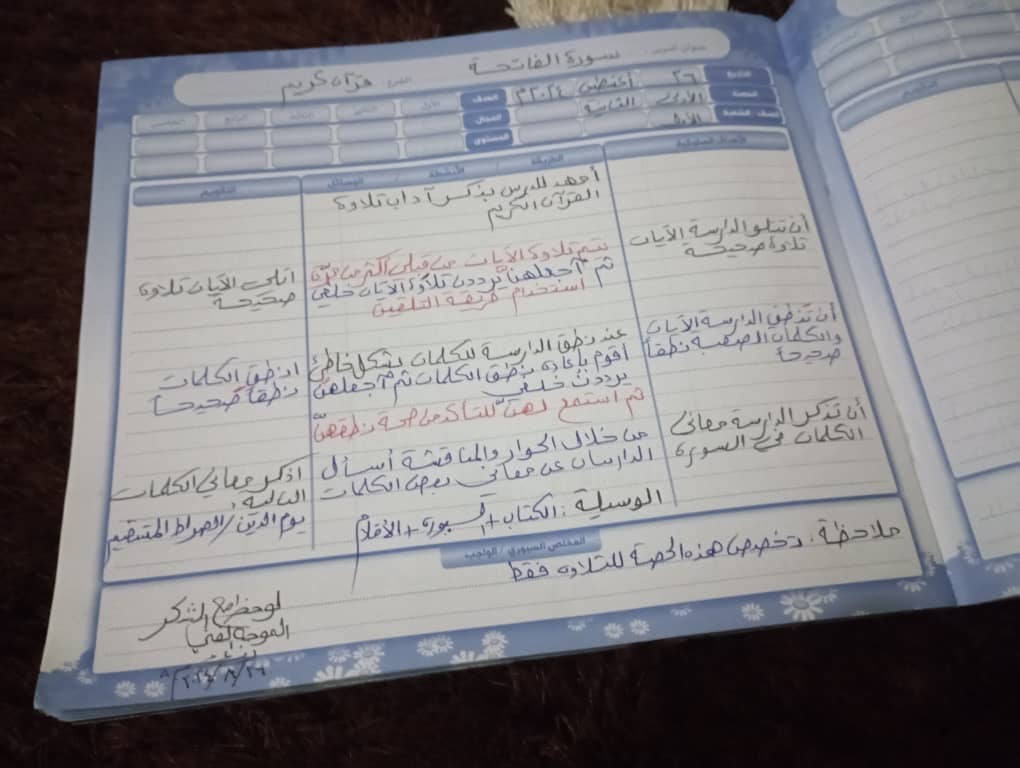 عنوان الدرس: سورة الفاتحة الفرع: قرآن كريم
التاريخ ٢٦ أغسطس ٢٠٢٤م
الحصة الأولى الثانية
الصف الأول الثاني الثالث الرابع الخامس
المجال
المستوى
الصف - الشعبة الأول
الأهداف السلوكية
الطريقة / الأنشطة / الوسائل
التقويم
أن تتلو الدارسة الآيات
تلاوة صحيحة
أن تنطق الدارسة الآيات
والكلمات الصعبة نطقاً
صحيحاً
أن تذكر الدارسة معاني
الكلمات في السورة
أمهد للدرس بذكر آداب تلاوة
القرآن الكريم
تتم تلاوة الآيات من قبلي أكثر من مرة
ثم أجعلهن يرددن تلاوة الآيات خلفي
استخدام طريقة التلقين
عند نطق الدارسة للكلمات بشكل خاطئ
أقوم بإعادة نطق الكلمات ثم أجعلهن
يرددن خلفي
ثم أستمع لهن للتأكد من صحة نطقهن
من خلال الحوار والمناقشة أسأل
الدارسات عن معاني بعض الكلمات
الوسيلة: الكتاب + السبورة + الأقلام
اتلي الآيات تلاوة
صحيحة
انطق الكلمات
نطقاً صحيحاً
اذكر معاني الكلمات
التالية:
يوم الدين / الصراط المستقيم
الملخص السبوري / الواجب
ملاحظة: تخصص هذه الحصة للتلاوة فقط
لوحظ مع الشكر
الموجه الفني
٢٠٢٤/٨/٢٦م